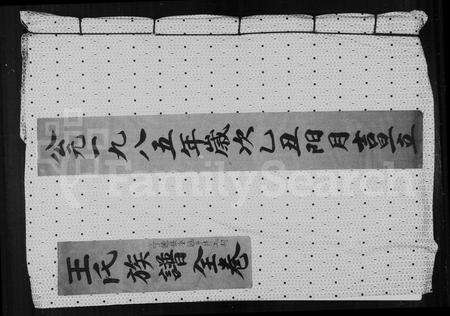 公元一九八五年歲次乙丑阳月吉旦立
王氏族譜全卷
FamilySearch